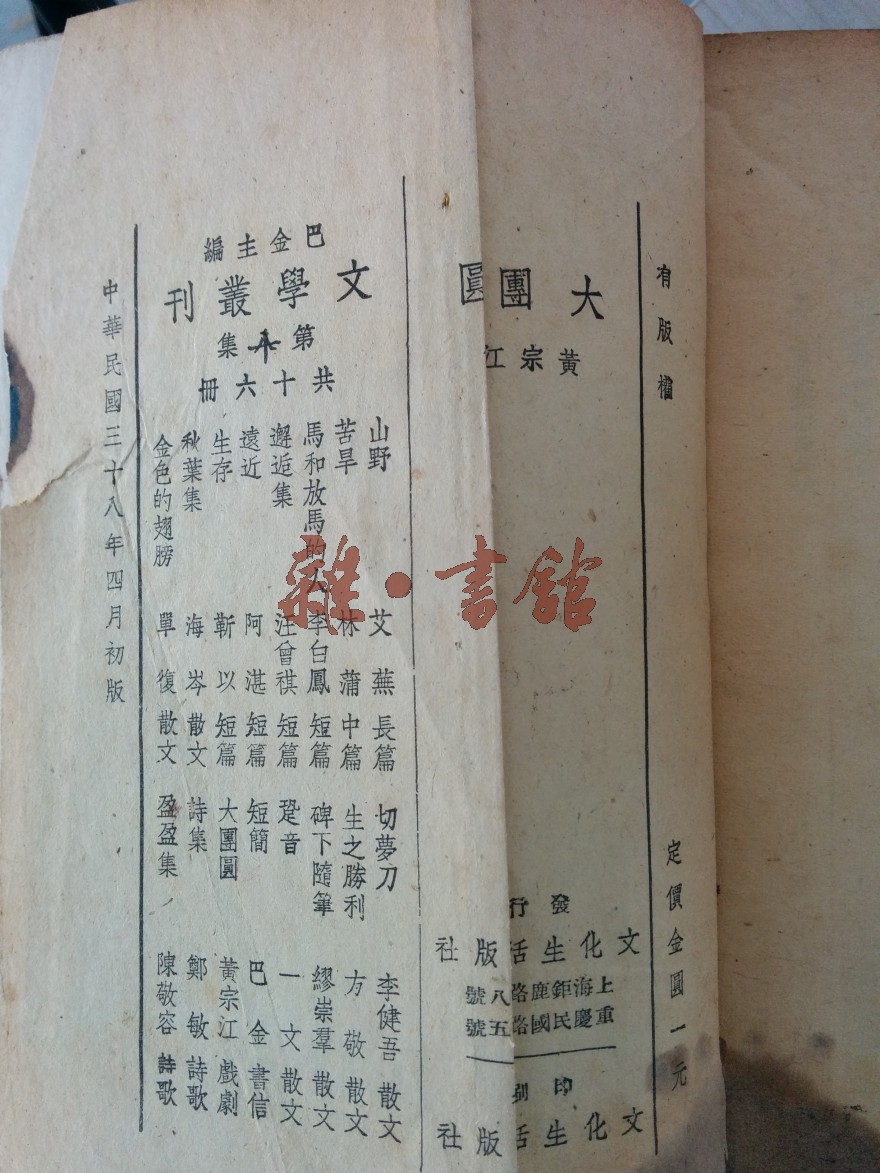 有版權
定價金圓一元
大團圓
黃宗江
發行
文化生活版社
上海鉅鹿路八號
重慶民國路五號
印刷
文化生活版社
巴金主編
文學叢刊
第十集
共十六冊
山野 艾蕪 長篇
苦旱 林蒲 中篇
馬和放馬的人 李白鳳 短篇
邂逅集 汪曾祺 短篇
遠近 阿湛 短篇
生存 靳以 短篇
秋葉集 海岑 散文
金色的翅膀 單復 散文
切夢刀 李健吾 散文
生之勝利 方敬 散文
碑下隨筆 繆崇羣 散文
跫音 一文 散文
短簡 巴金 書信
大團圓 黃宗江 戲劇
詩集 鄭敏 詩歌
盈盈集 陳敬容 詩歌
中華民國三十八年四月初版
雜·書館